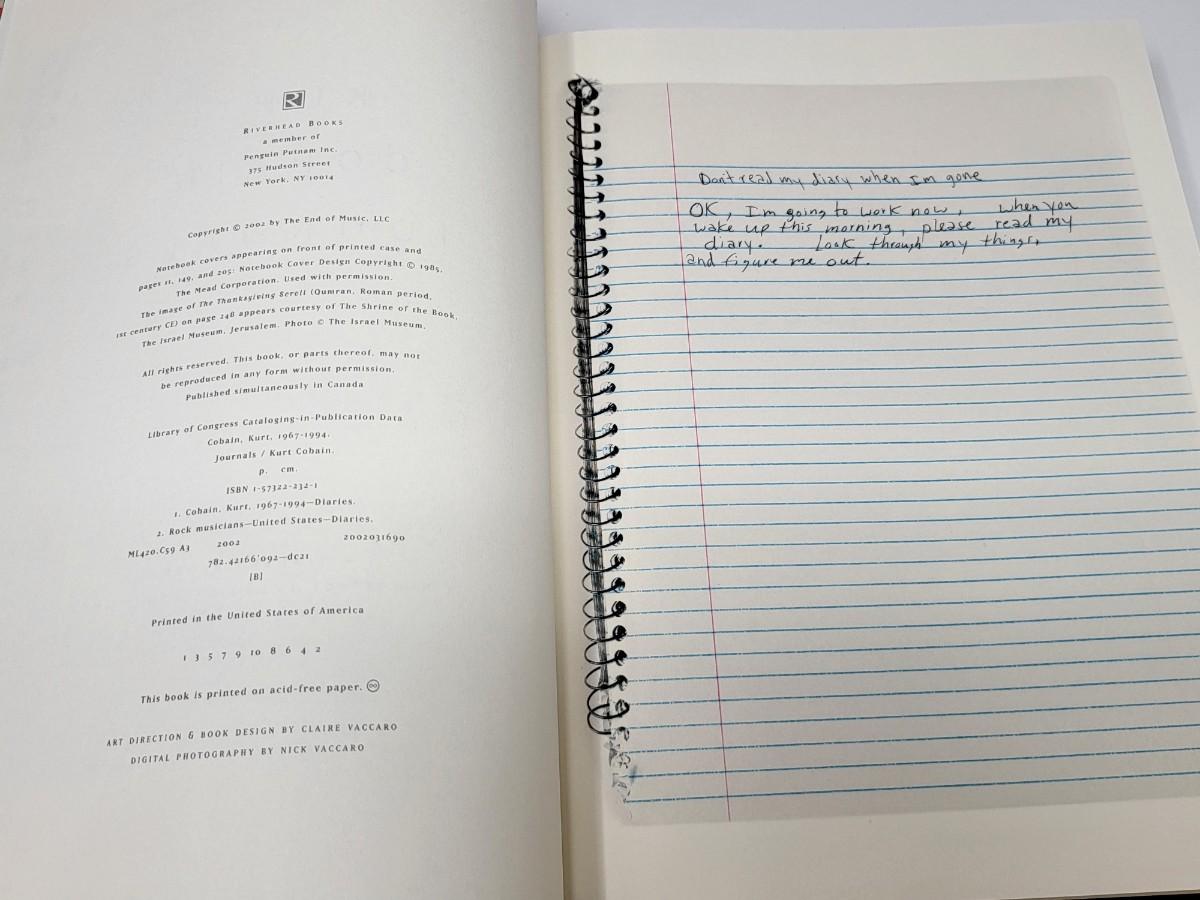 R
RIVERHEAD BOOKS
a member of
Penguin Putnam Inc.
375 Hudson Street
New York, NY 10014
Copyright © 2002 by The End of Music, LLC
Notebook covers appearing on front of printed case and
pages 11, 149, and 205: Notebook Cover Design Copyright © 1985,
The Mead Corporation. Used with permission.
The image of The Thanksgiving Scroll (Qumran, Roman period,
1st century CE) on page 248 appears courtesy of The Shrine of the Book,
The Israel Museum, Jerusalem. Photo © The Israel Museum.
All rights reserved. This book, or parts thereof, may not
be reproduced in any form without permission.
Published simultaneously in Canada
Library of Congress Cataloging-in-Publication Data
Cobain, Kurt, 1967-1994.
Journals / Kurt Cobain.
p. cm.
ISBN 1-57322-232-1
1. Cobain, Kurt, 1967-1994—Diaries.
2. Rock musicians—United States—Diaries.
ML420.C59 A3 2002 2002031690
782.42166'092—dc21
[B]
Printed in the United States of America
1 3 5 7 9 10 8 6 4 2
This book is printed on acid-free paper. ♾
ART DIRECTION & BOOK DESIGN BY CLAIRE VACCARO
DIGITAL PHOTOGRAPHY BY NICK VACCARO
Don't read my diary when I'm gone
OK, I'm going to work now, when you
wake up this morning, please read my
diary. Look through my things,
and figure me out.